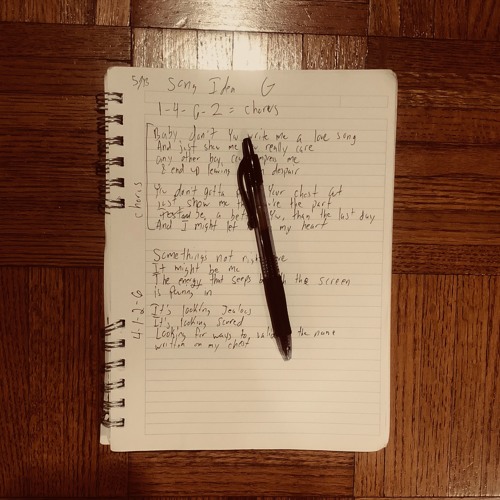 5/13 Song Idea G
1-4-6-2 = chorus
Baby don't You write me a love song
And just show me really care
any other boy, me
& end up leaving despair
You don't gotta Your chest Cut
Just show me the part
Instead be, a better You, than the last day
And I might let my heart
Chorus
Somethings not right
It might be me
The energy that seeps the screen
is in
It's looking Jealous
It's looking Scared
Looking for ways to the name
written on my chest
4-1-2-6